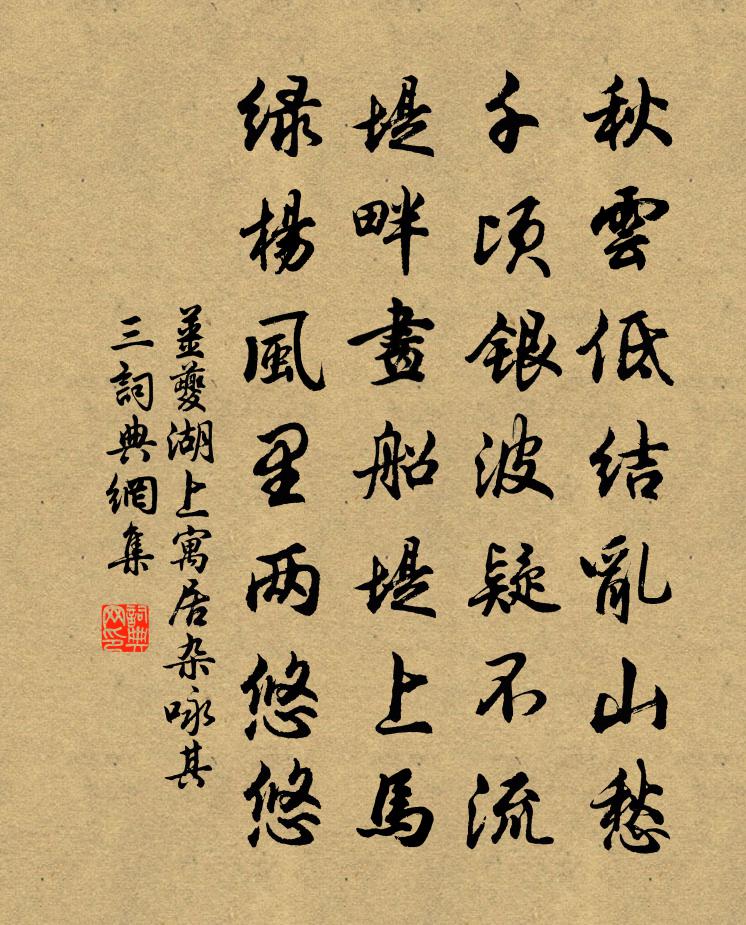 秋雲低結亂山愁
千頃銀波疑不流
堤畔畫船堤上馬
緑楊風里两悠悠
姜夔湖上寓居杂咏其
三詞典網集
詞典網印